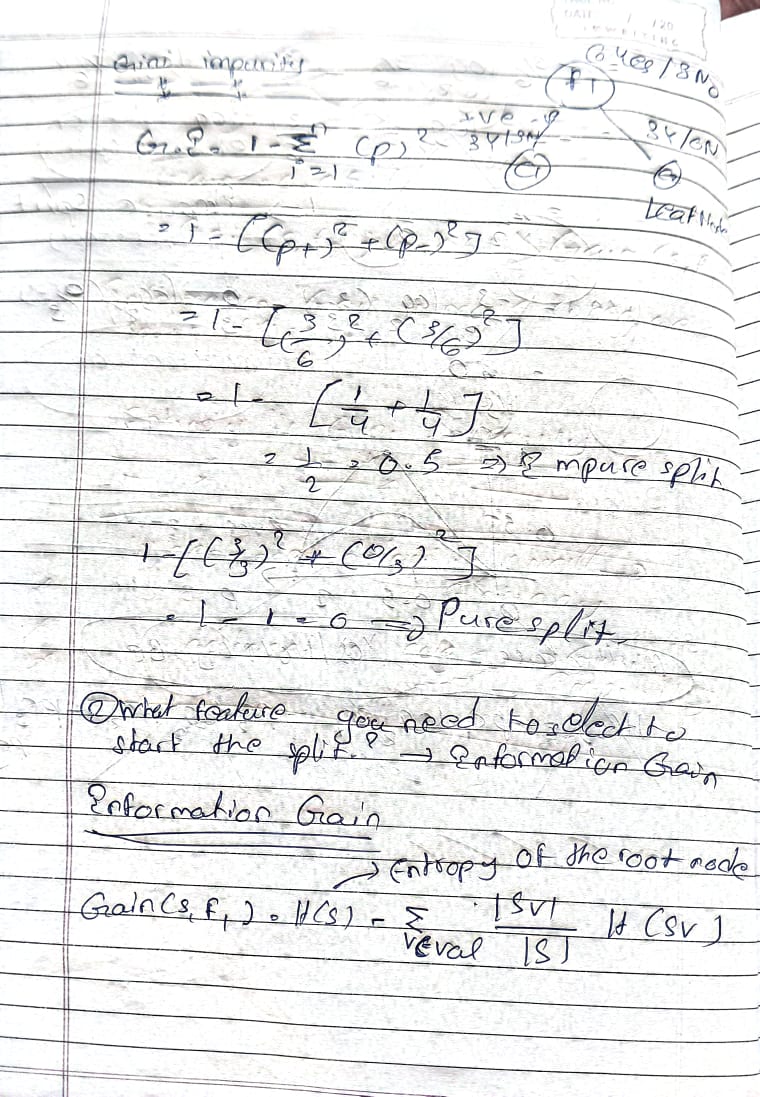 Gini impurity
6 Yes / 3 No
F1
G.I. = 1 - Σ^n_{i=1} (p)²
3Y/3N
C1
3Y/0N
C2
Leaf Node
= 1 - [(p+)² + (p-)²]
= 1 - [(3/6)² + (3/6)²]
= 1 - [1/4 + 1/4]
= 1/2 = 0.5 ⇒ Impure split
1 - [(3/3)² + (0/3)²]
= 1 - 1 = 0 ⇒ Pure split
② What feature you need to select to
start the split.? → Information Gain
Information Gain
→ Entropy of the root node
Gain(S, F1) = H(S) - Σ_{v∈val} |Sv|/|S| H(Sv)